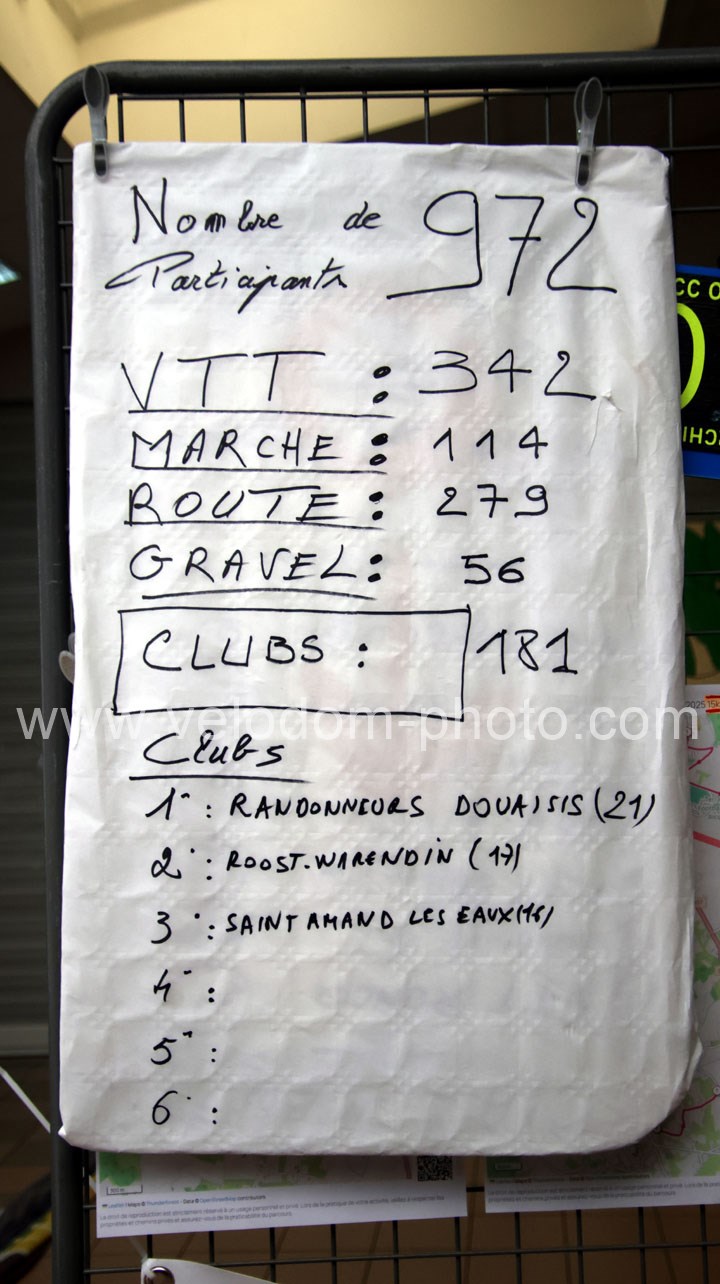 Nombre de 972
Participants
VTT : 342
MARCHE : 114
ROUTE : 279
GRAVEL : 56
CLUBS : 181
www.velodom-photo.com
Clubs
1 : RANDONNEURS DOUAISIS (21)
2 : ROOST-WARENDIN (17)
3 : SAINT AMAND LES EAUX (16)
4 :
5 :
6 :
CC O
2025 15k